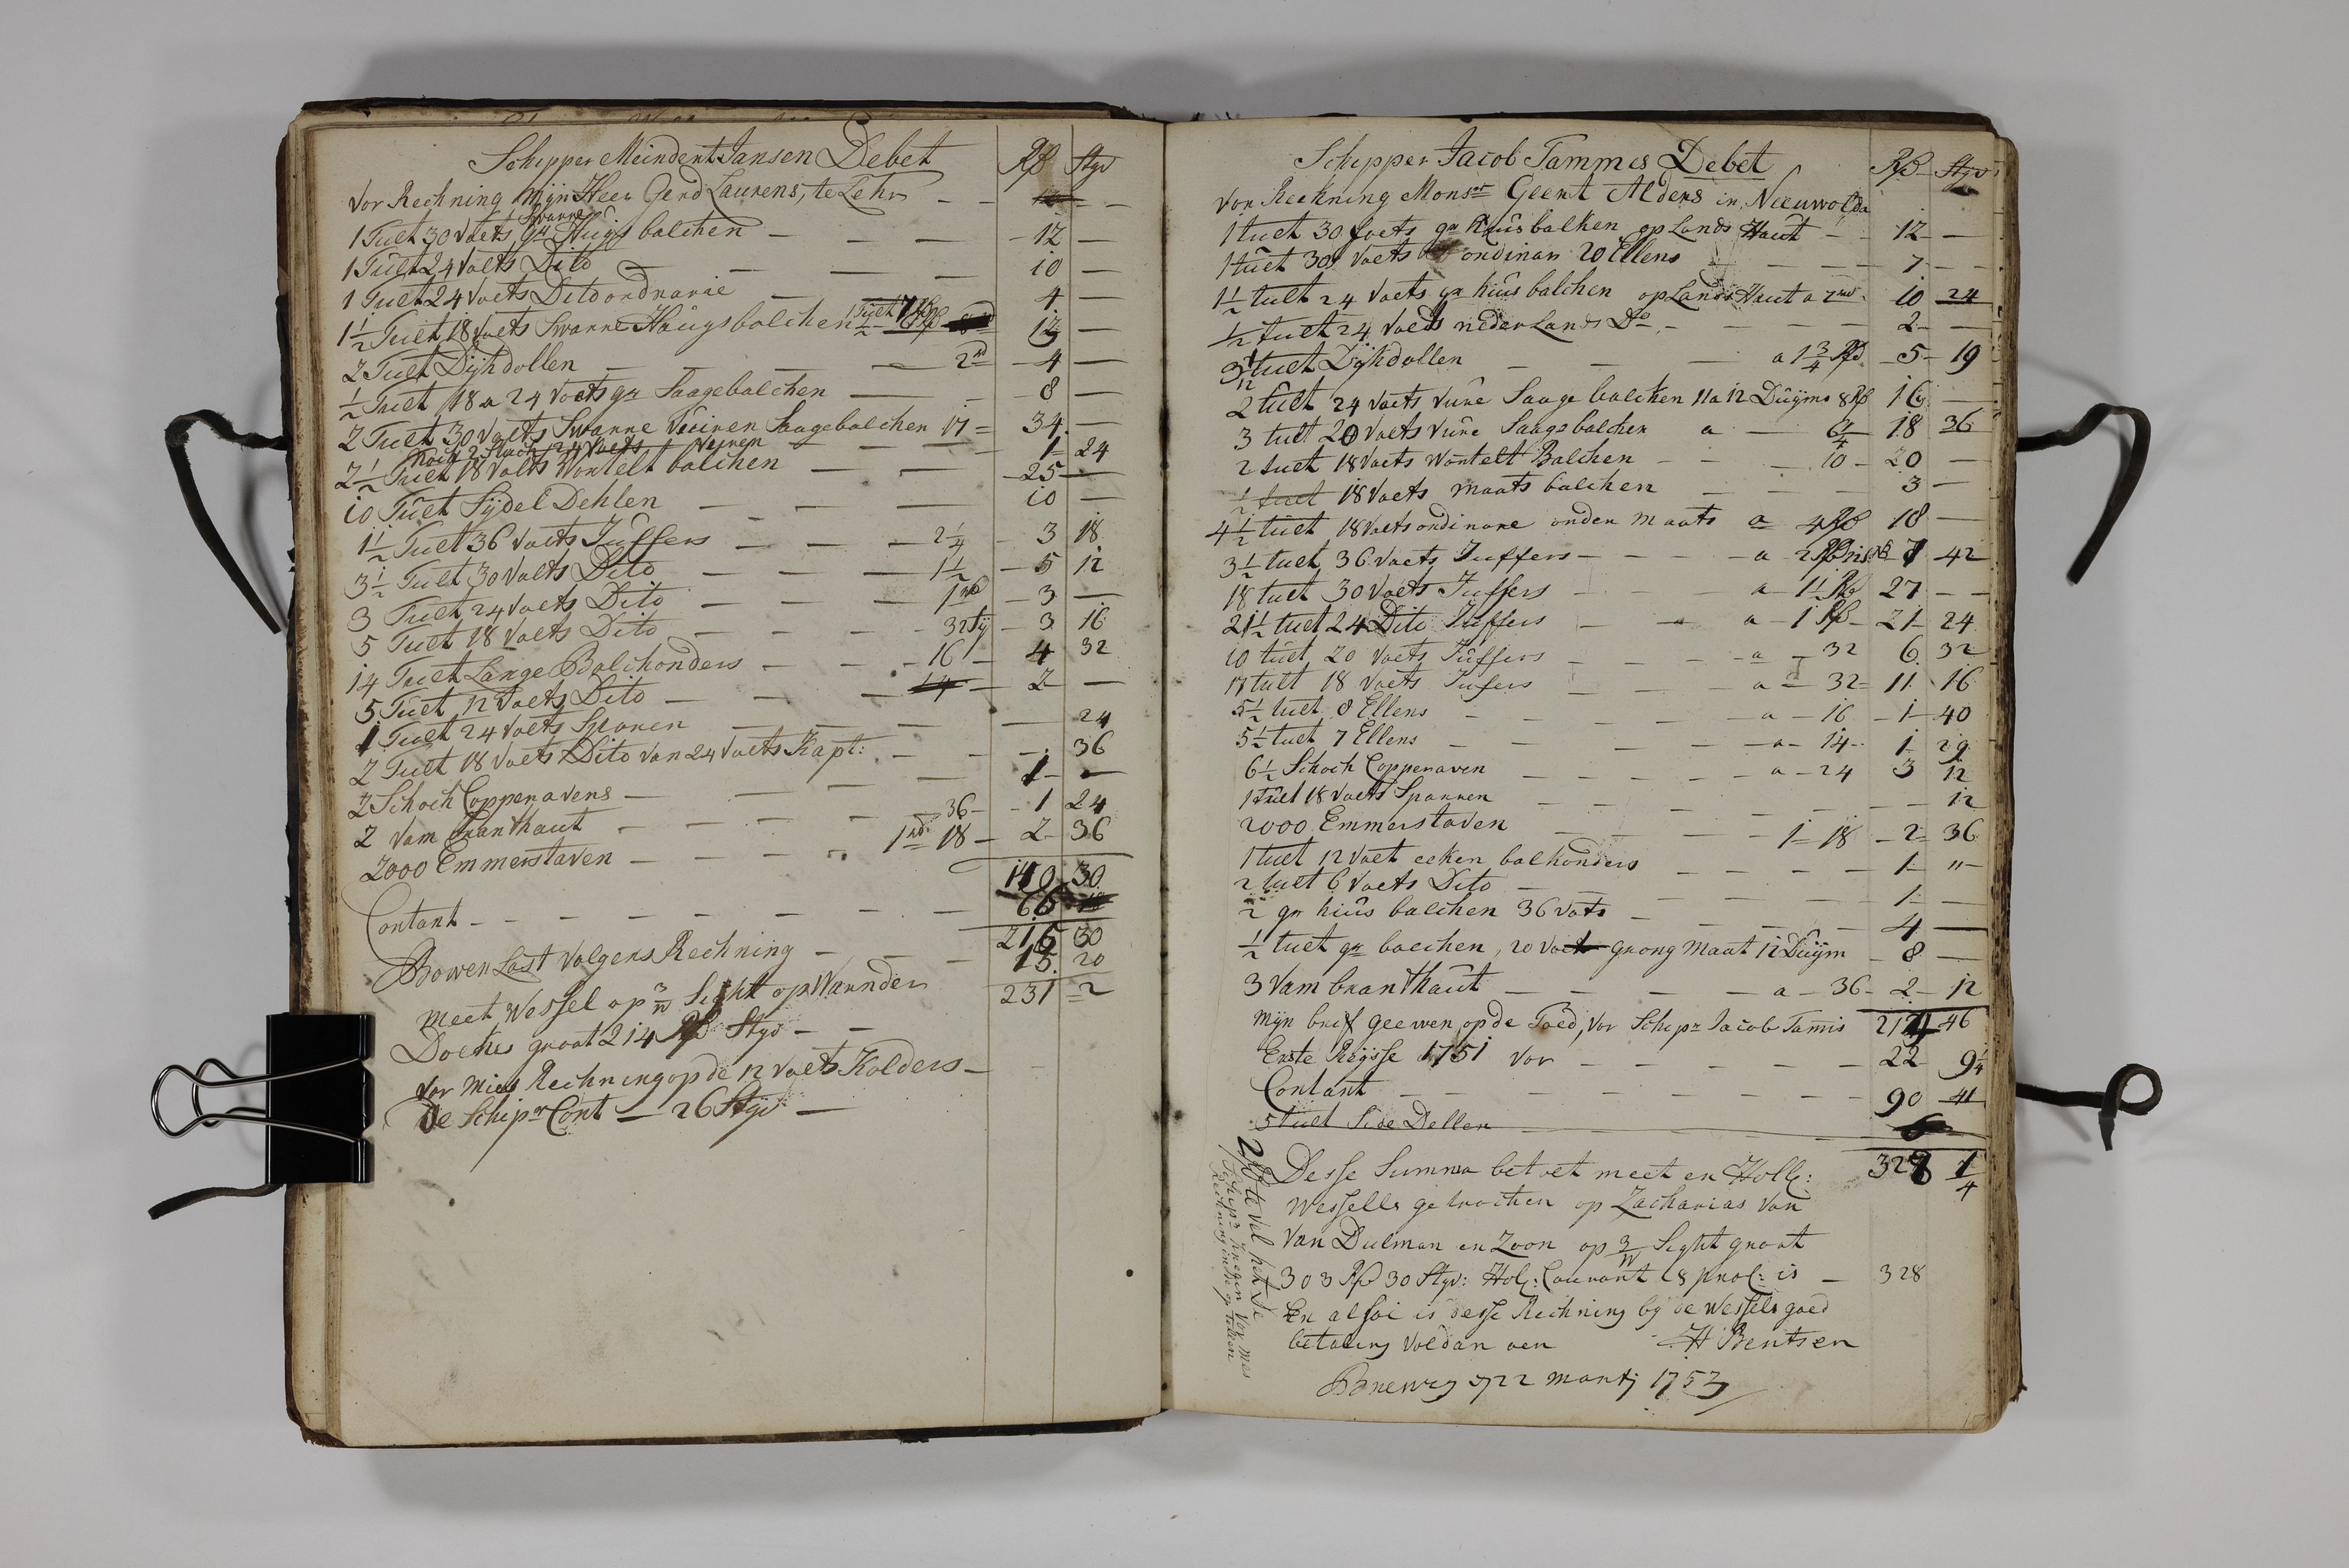 Schipper Meindert Jansen Debet Rß Stgv
Vor Rechning Mijn Heer Gerd Laurens, te Lehr
1 Tuet 30 Voets gr Swanne Huigs balchen 12 —
1 Tuet 24 Voets Dito 10 —
1 Tuet 24 Voets Dito ordnarie 4 —
1½ Tuet 18 Voets Swanne Haugsbalchen 12 —
2 Tuet Dijkdollen 2 4 —
½ Tuet 18 a 24 Voets gr Saagebalchen 8 —
2 Tuet 30 Voets Swanne Vüiren Saagebalchen 17 34 —
Noch 2 Stuck 24 Voets Veiren 1 24
2½ Tuet 18 Voets Wontelt balchen 25 —
10 Tuet Sijdel Dehlen 10 —
1½ Tuet 36 Voets Juffers 2¼ 3 18
3½ Tuet 30 Voets Dito 1½ 5 12
3 Tuet 24 Voets Dito 1 3 —
5 Tuet 18 Voets Dito 32 Stj 3 16
14 Tuet Lange Balchonders 16 4 32
5 Tuet 12 Voets Dito 14 2 —
1 Tuet 24 Voets Sparen 24
2 Tuet 18 Voets Dito van 24 Voets Kapt: 36
2 Schoch Coppenavens 1 —
2 Vam Branthaut 36 1 24
2000 Emmerstaven 1 18 2 36
140 30
Contant 66
216 30
Bowen Last Volgens Rechning 15 20
231 2
meet Wessel op 3/w Sight op Warnder
Doches groot 214 Rß Stgv
Vor mies Rechning op de 12 Voets Kolders
De Schipr Cont — 26 Stgv —
Schipper Jacob Tammes Debet Rß Stgv
Von Reekning Monsr Geert Alders in Neeuwolda
1 tuet 30 foets gr Huis balken op Lands Haut 12 —
1 tuet 30 Voets ordinair 20 Ellens 7 —
1½ tuet 24 Voets gr hius balchen op Lands Haut a 7 10 24
½ tuet 24 Voets nederlands Do 2 —
3½ tuet Dijkdollen a 1¾ Rß 5 19
2 tuet 24 Voets Vure Saage balchen 11 a 12 Duijms 8 Rß 16 —
3 tuet 20 Voets Vure Saagsbalchen a 6¼ 18 36
2 tuet 18 Voets Wontelt Balchen 10 20 —
½ tuet 18 Voets maats balchen 3 —
4½ tuet 18 Voets ordinare onder maats a 4 Rß 18 —
3½ tuet 36 Voets Juffers a 2 Rß 7 42
18 tuet 30 Voets Juffers a 1½ Rß 27 —
21½ tuet 24 Dito Juffers a 1 Rß 21 24
10 tuet 20 Voets Juffers a 32 6 32
17 tuet 18 Voets Jufers a 32 11 16
5½ tuet 8 Ellens a 16 1 40
5½ tuet 7 Ellens a 14 1 29
6½ Schoch Coppenaven a 24 3 12
1 Tuet 18 Voets Sparren 12
2000 Emmerstaven 1 18 2 36
1 tuet 12 Voet eeken balhonders 1 "
2 tuet 6 Voets Dito 1 —
2 gr hius balchen 36 Vots 4 —
½ tuet gr balchen, 20 Voet grong Maat 12 Duijm 8 —
3 Vam branthaut a 36 2 12
Mijn brif geewen op de Toed, Vor Schipr Jacob Tamis 217 46
Erste Reijsse 1751 Vor 22 9¼
Contant 90 41
5 tuet Side Dellen
Desse Summa betret meet en Holl: 328 ¼
Wessells getrochen op Zacharias Van
Van Dulman en Zoon op 3/w Sight groot
303 Rß 30 Stgv: Hol: Courant 8 proC: is 328
En alsoi is desse Rechning by de Wessels goed
betaling Voldan aen H Bentsen
Brewig d 22 Martj 1753
2 Rß te Vel het de
Schipr kregen Vor mes
Rechning in de op tellen